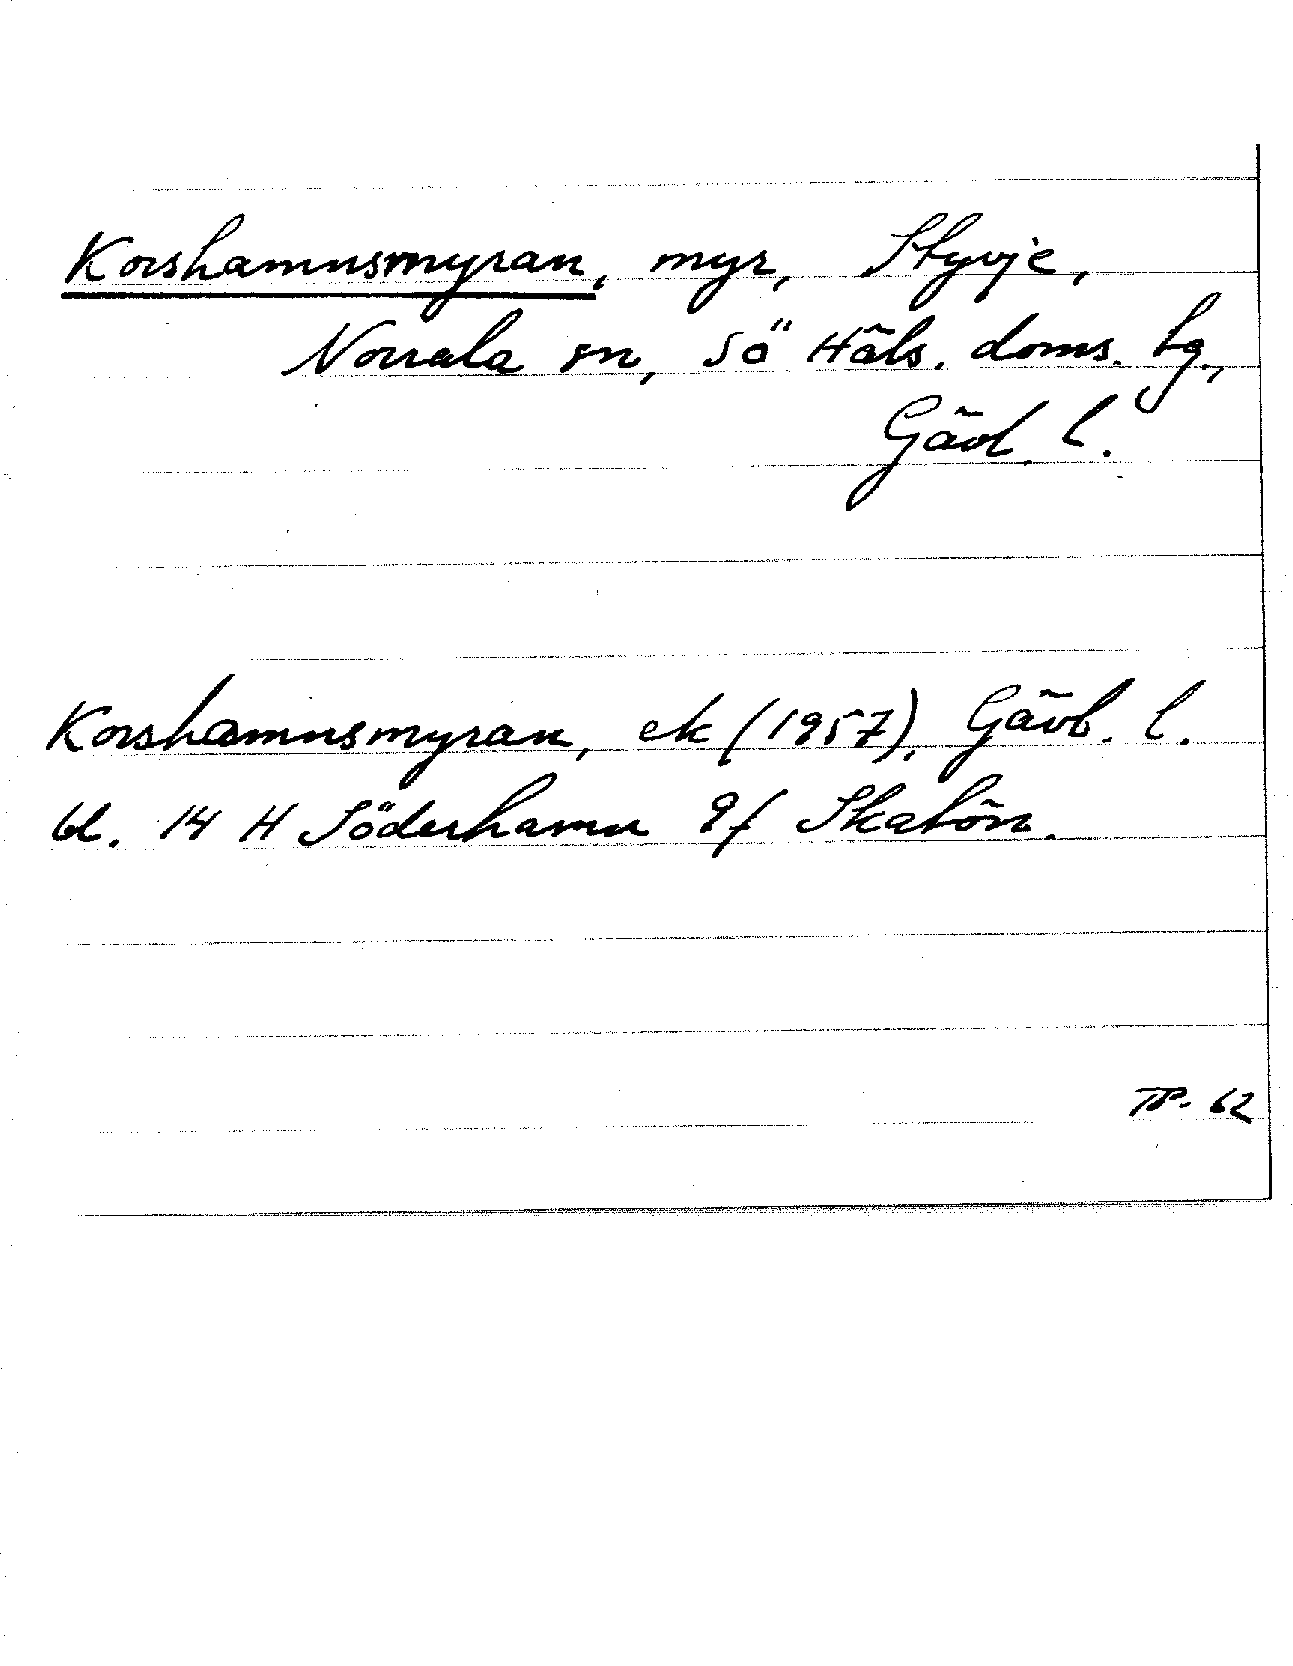 Korshamnsmyran, myr, Styvje,
Norrala sn, Sö Häls. doms. hg.,
Gävl. l.
Korshamnsmyran, ek (1957), Gävb. l.
bl. 14 H Söderhamn 9f Skatön.
TP. 62